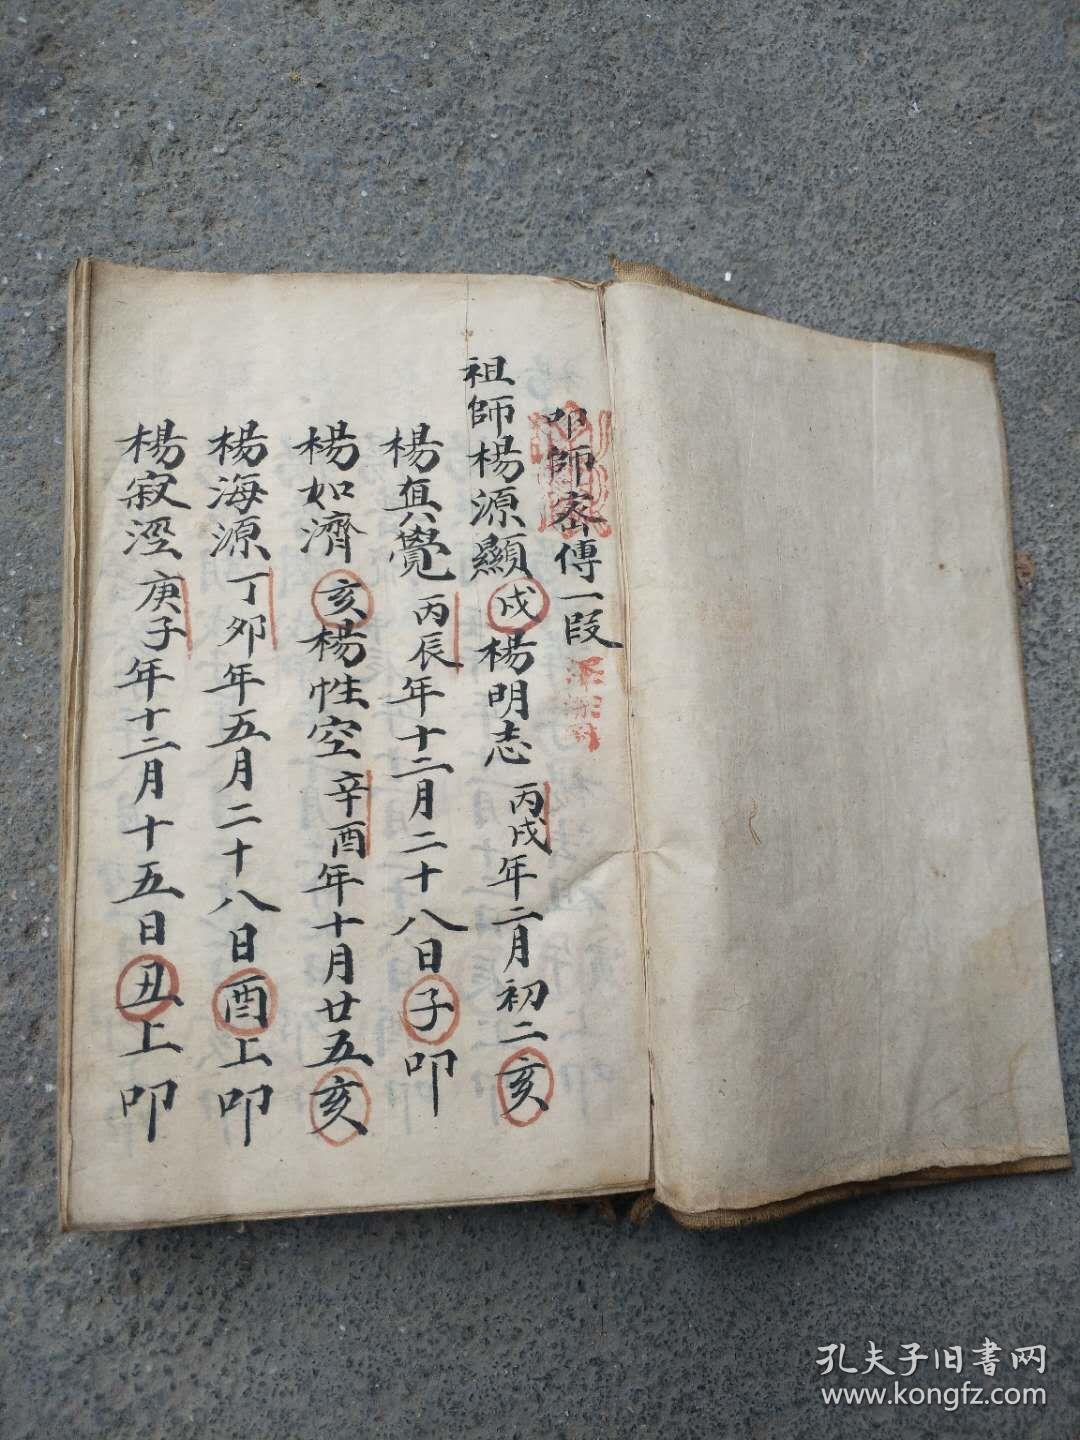 叩師宻傳一段
祖師楊源顯戌楊明志丙戌年二月初二亥
楊真覺丙辰年十二月二十八日子叩
楊如濟亥楊性空辛酉年十月廿五亥
楊海源丁夘年五月二十八日酉上叩
楊寂淫庚子年十二月十五日丑上叩
孔夫子旧書网
www.kongfz.com